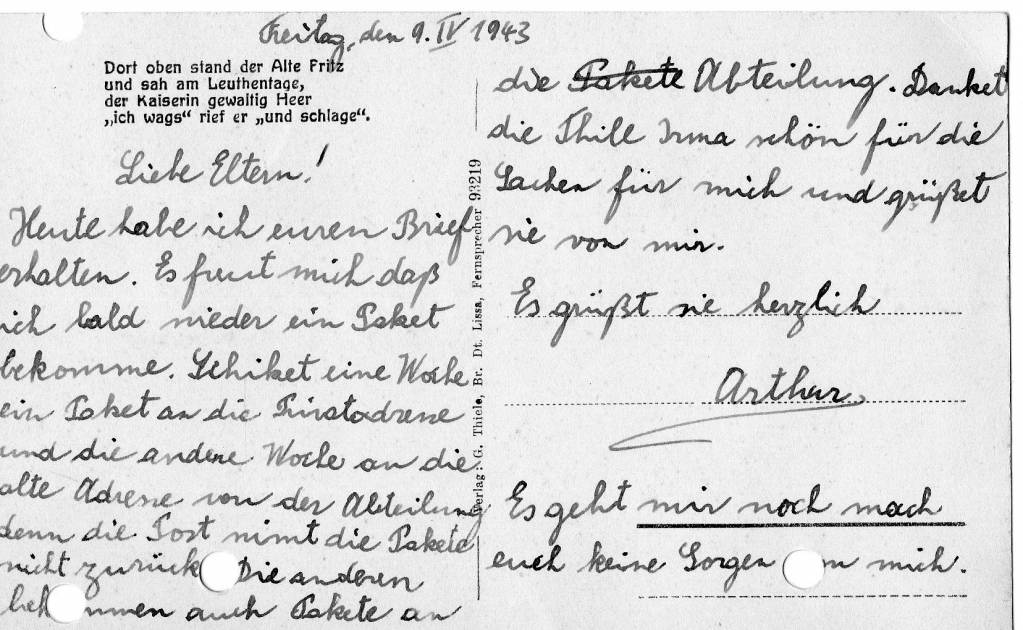 Freitag, den 9. IV 1943
Dort oben stand der Alte Fritz
und sah am Leuthentage,
der Kaiserin gewaltig Heer
„ich wags“ rief er „und schlage“.
Liebe Eltern!
Heute habe ich euren Brief
erhalten. Es freut mich daß
ich bald wieder ein Paket
bekomme. Schiket eine Woche
ein Paket an die Privatadresse
und die andere Woche an die
alte Adresse von der Abteilung
denn die Post nimt die Pakete
nicht zurück. Die anderen
bekommen auch Pakete an
Verlag: G. Thiele, Br. Dt. Lissa, Fernsprecher 93219
die Pakete Abteilung. Danket
die Thill Irma schön für die
Sachen für mich und grüßet
sie von mir.
Es grüßt sie herzlich
Arthur.
Es geht mir noch mach
euch keine Sorgen um mich.